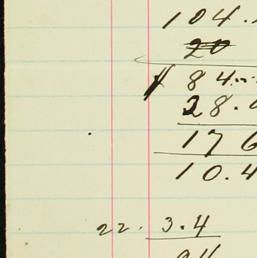 104.
20
84.
28.
176
10.4
22. 3.4
94